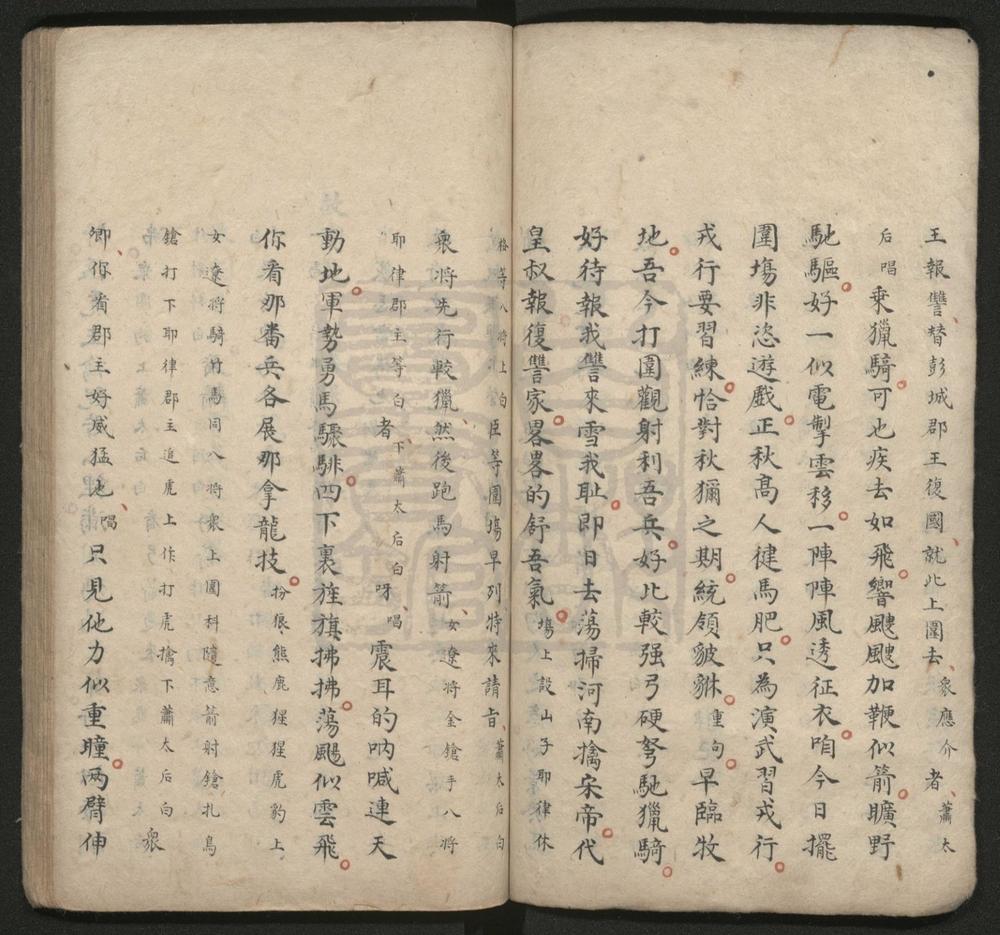 王報讐替彭城郡王復國就此上圍去衆應介者蕭太
后唱乗獵騎可也疾去如飛響颼颼加鞭似箭曠野
馳驅好一似電掣雲移一陣陣風透征衣咱今日擺
圍塲非恣遊戲正秋高人健馬肥只為演武習戎行
戎行要習練恰對秋獮之期統領貔貅重句早臨牧
地吾今打圍觀射利吾兵好比較强弓硬弩馳獵騎
好待報我讐來雪我耻即日去蕩掃河南擒宋帝代
皇叔報復讐家畧畧的舒吾氣塲上設山子耶律休
格等八將上白臣等圍塲早列特來請旨蕭太后白
衆將先行較獵然後跑馬射箭女遼將金鎗手八將
耶律郡主等白者下蕭太后白呀唱震耳的吶喊連天
動地軍勢勇馬驟騑四下裏旌旗拂拂蕩颺似雲飛
你看那畨兵各展那拿龍技扮狼熊鹿猩猩虎豹上
女遼將騎竹馬同八將衆上圍科隨意箭射鎗扎鳥
鎗打下耶律郡主追虎上作打虎擒下蕭太后白衆
卿你看郡主好威猛也唱只見他力似重瞳兩臂伸